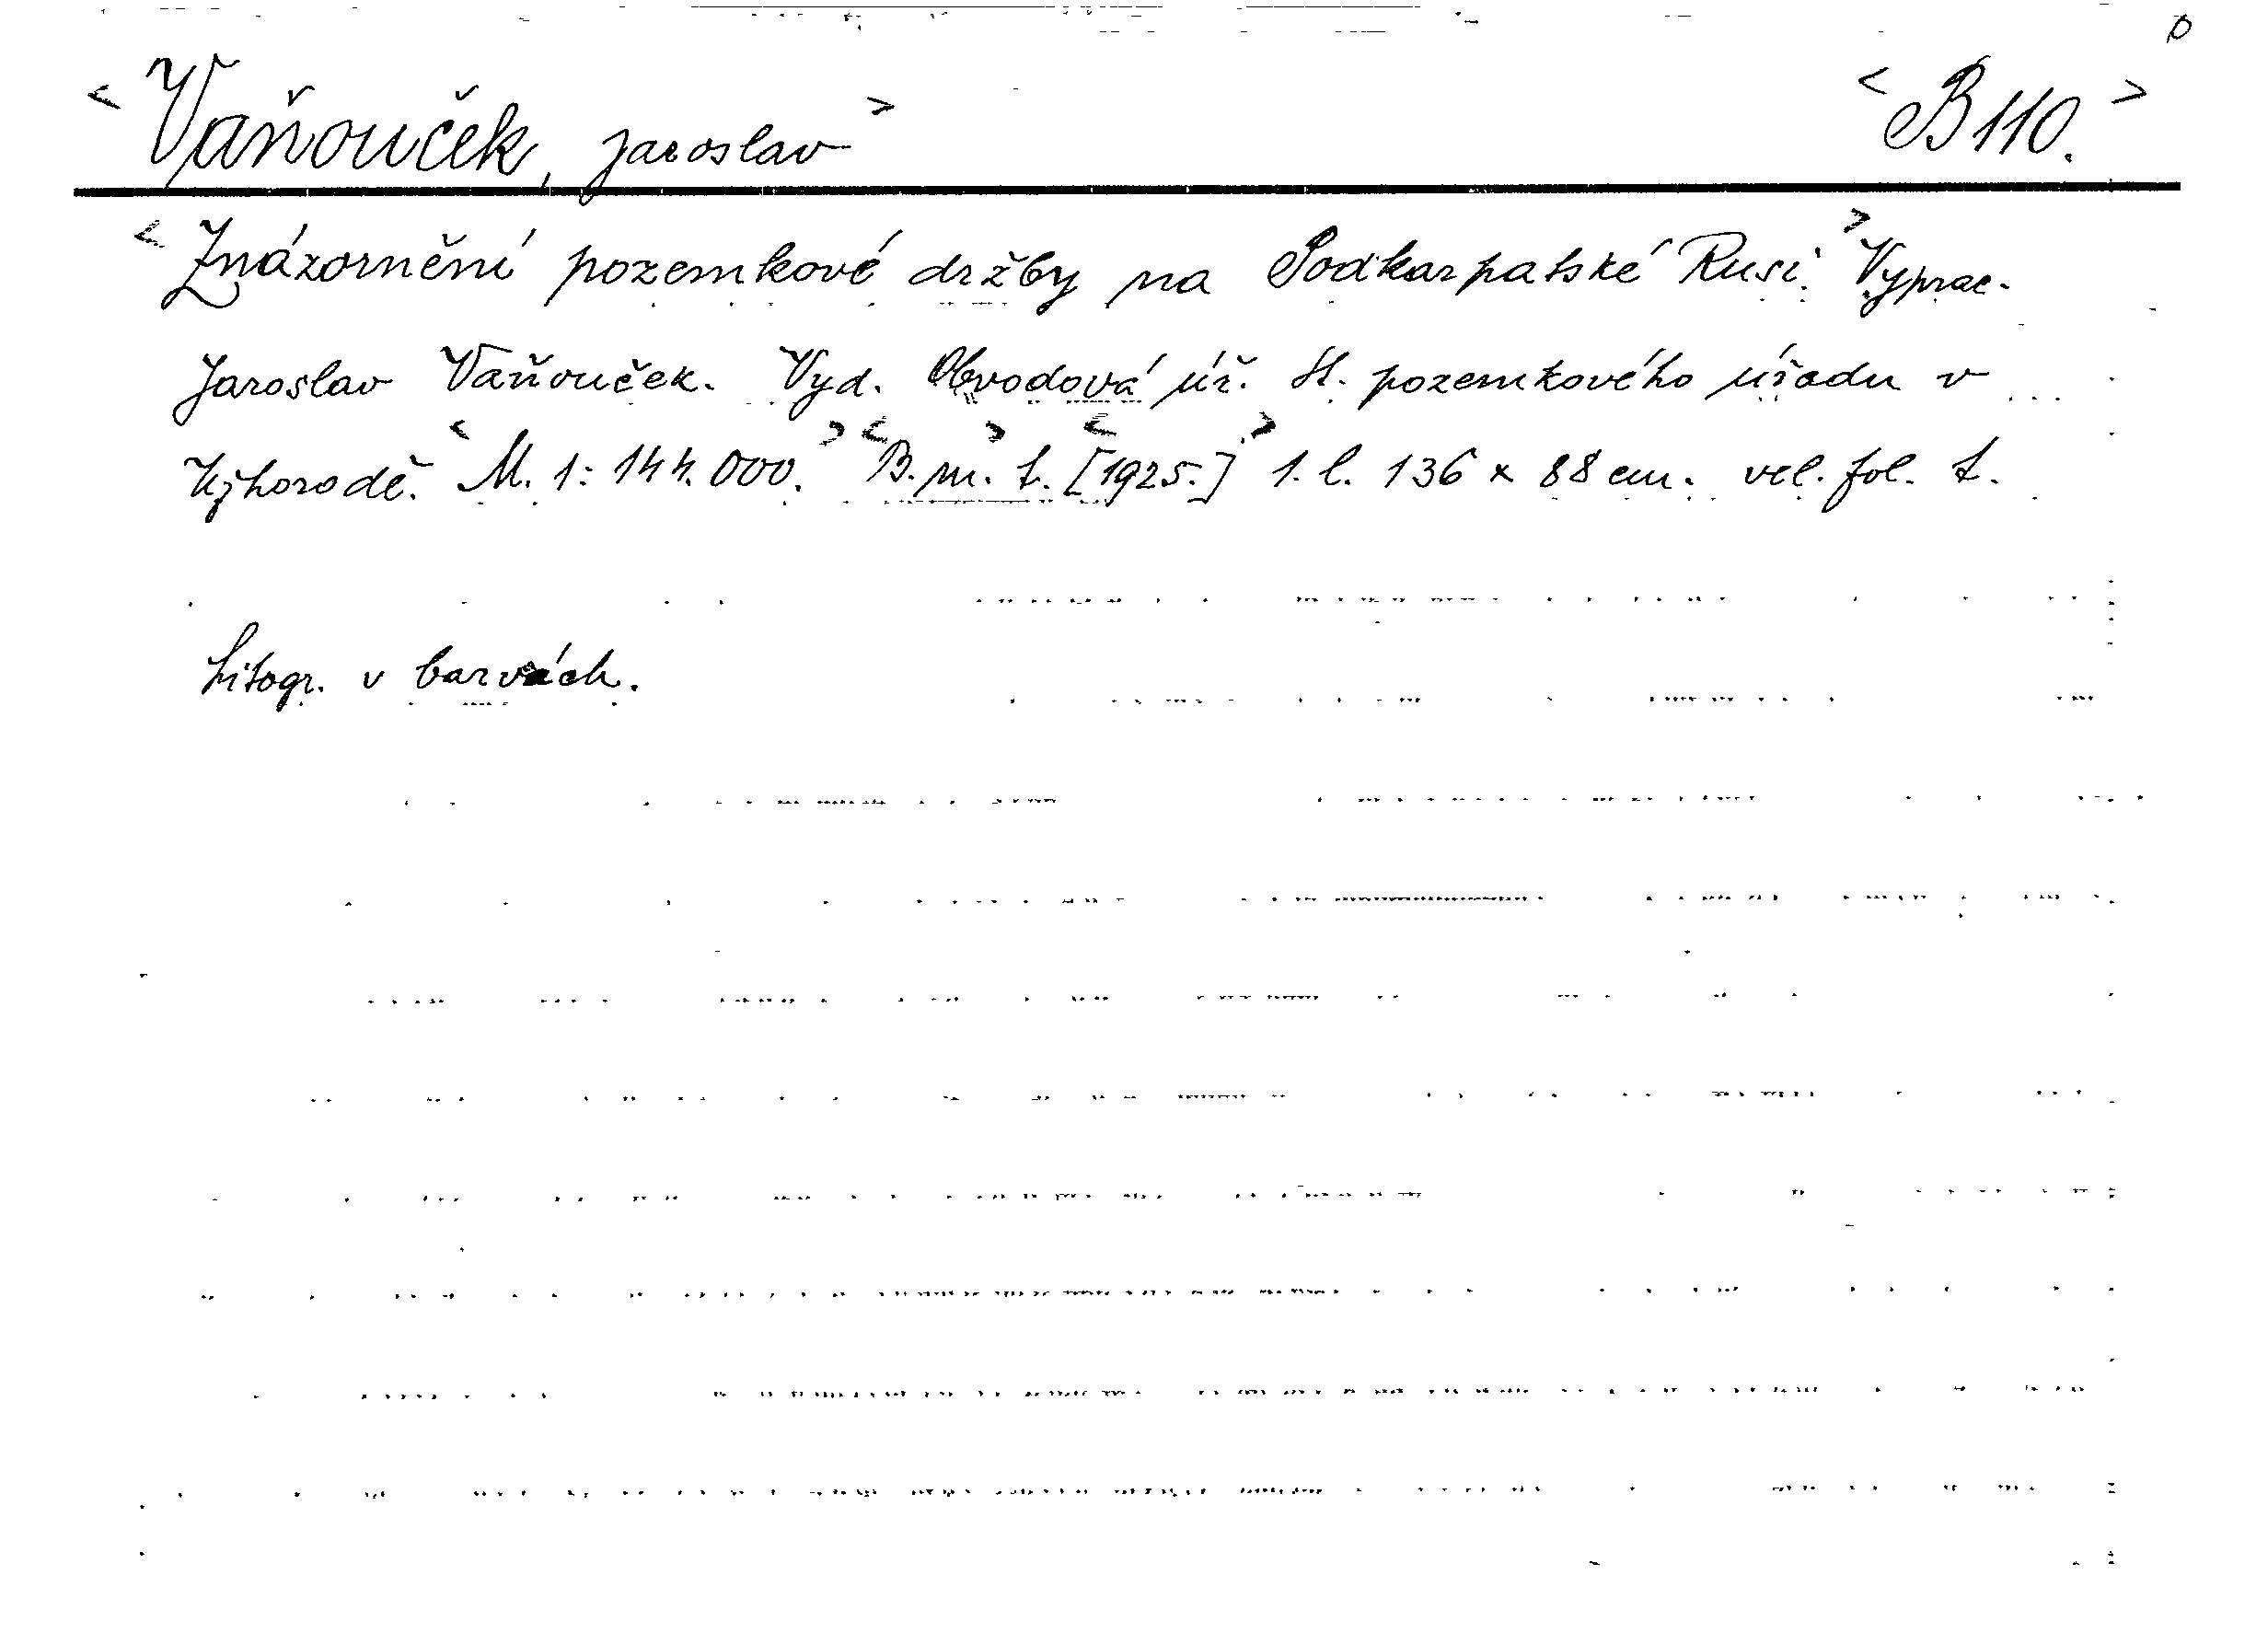 <Vaňouček, Jaroslav> <B 110.>
<Znázornění pozemkové držby na Podkarpatské Rusi.> Vyprac.
Jaroslav Vaňouček. Vyd. Obvodová úř. st. pozemkového úřadu v
Užhorodě. <M. 1: 144.000.> <B. m.> t. <[1925.]> 1. l. 136 x 88 cm. vel. fol. t.
Litogr. v barvách.